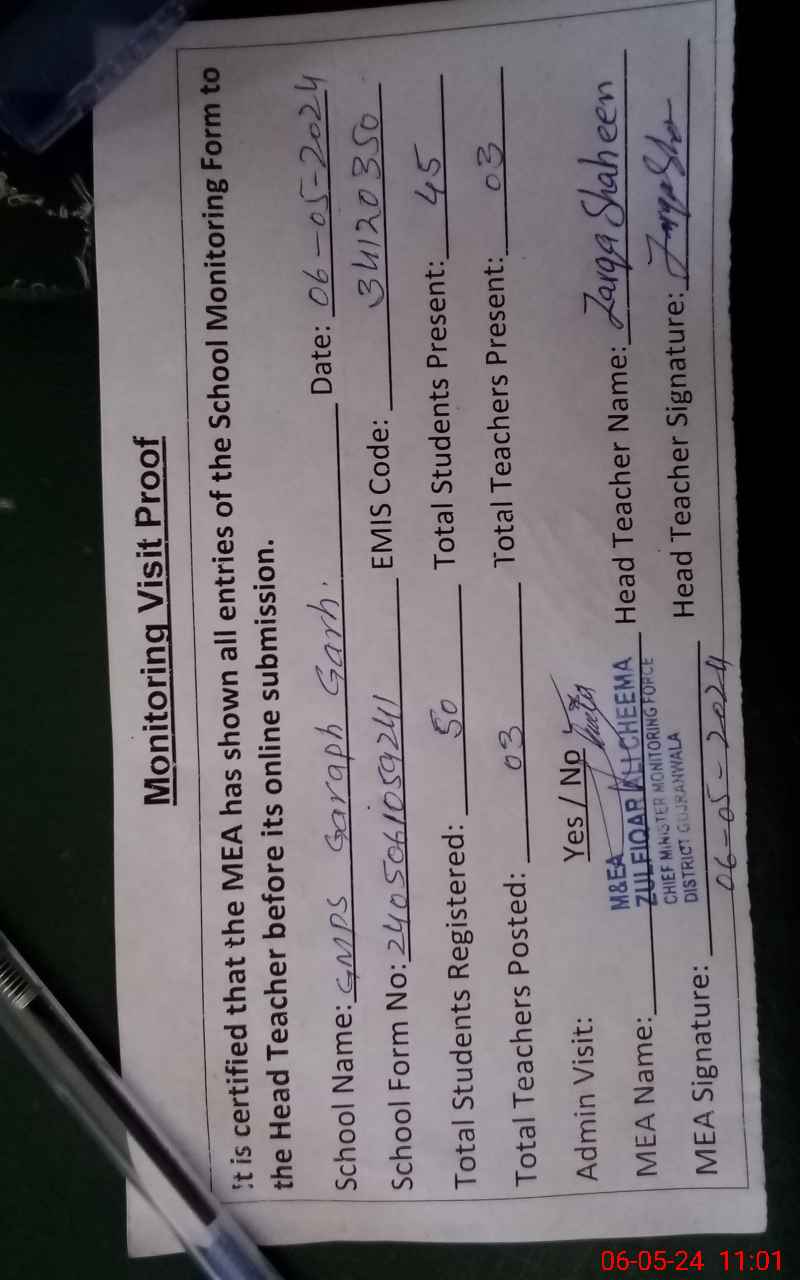 Monitoring Visit Proof
It is certified that the MEA has shown all entries of the School Monitoring Form to
the Head Teacher before its online submission.
School Name: GMPS Garaph Garh. Date: 06-05-2024
School Form No: 240506105924 EMIS Code: 34120350
Total Students Registered: 50 Total Students Present: 45
Total Teachers Posted: 03 Total Teachers Present: 03
Admin Visit: Yes / No
M&EA
MEA Name: ZULFIQAR ALI CHEEMA Head Teacher Name: Zarqa Shaheen
CHIEF MINISTER MONITORING FORCE
DISTRICT GUJRANWALA
MEA Signature: Head Teacher Signature:
06-05-2024
06-05-24 11:01